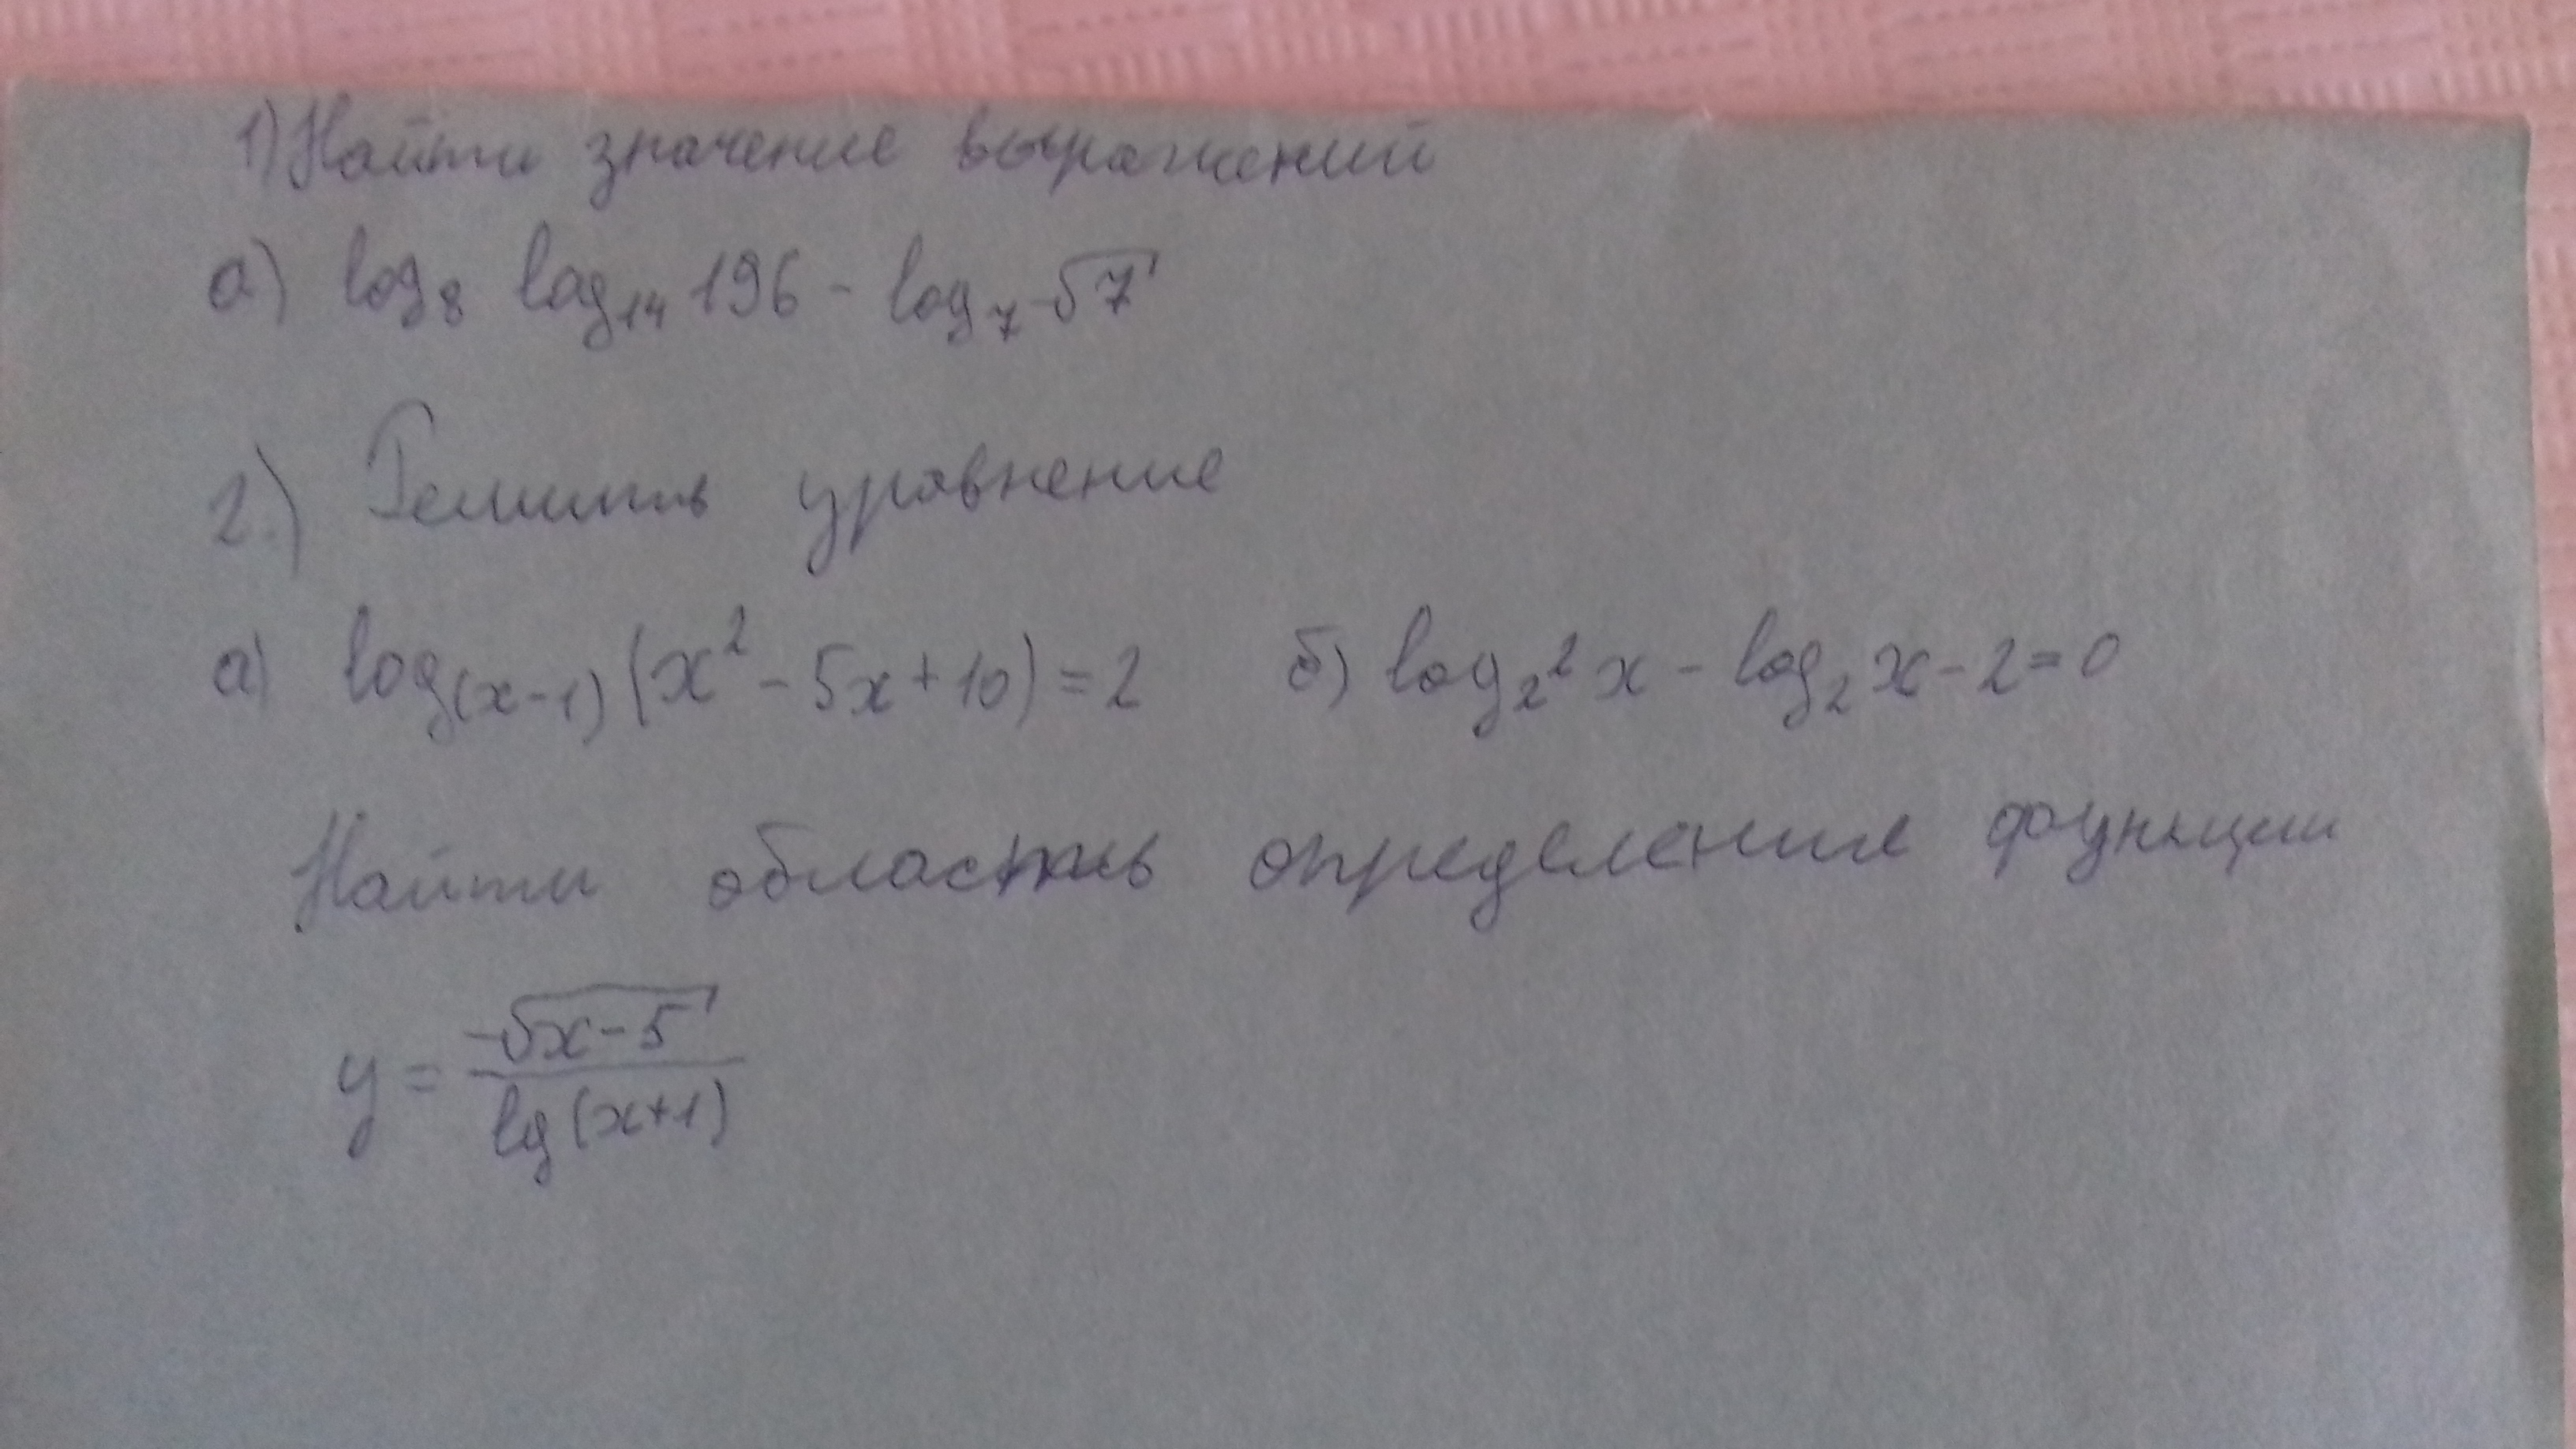 1) Найти значение выражений
а) log₈ log₁₄ 196 - log₇ √7
2.) Решить уравнение
а) log₍ₓ₋₁₎ (x² - 5x + 10) = 2 б) log₂² x - log₂ x - 2 = 0
Найти область определение функции
y = √(x - 5) / lg (x+1)